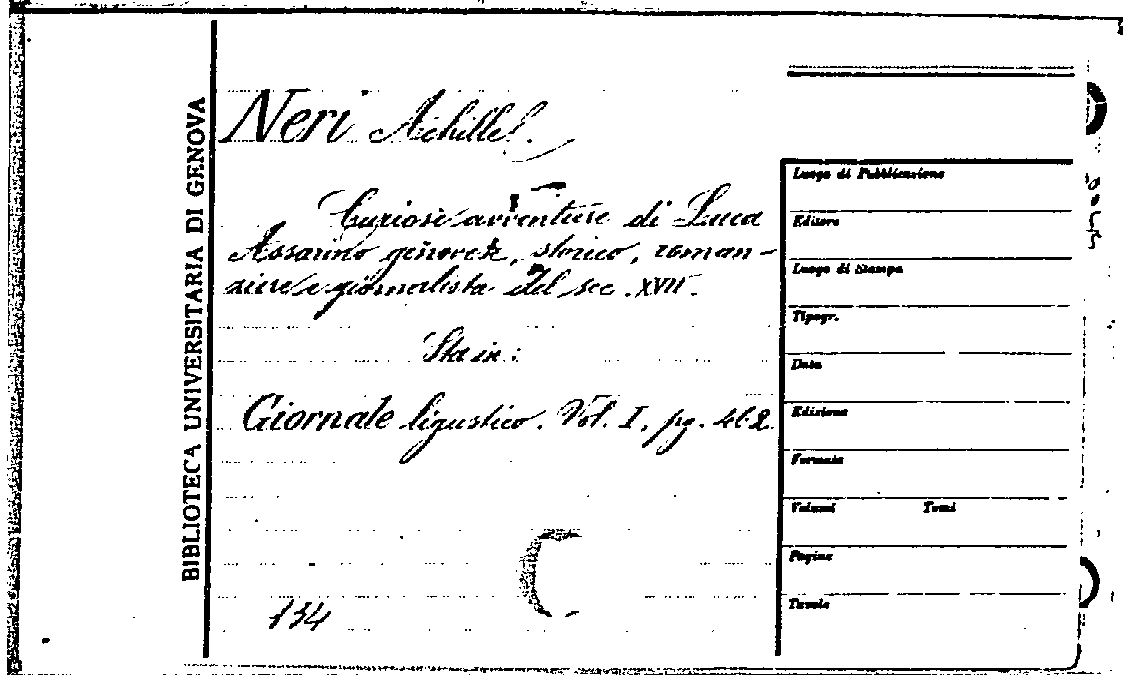 BIBLIOTECA UNIVERSITARIA DI GENOVA
Neri Achille.
Curiose avventure di Luca
Assarino genovese, storico, roman-
ziere e giornalista del sec. XVII.
Sta in:
Giornale ligustico. Vol. I, pg. 462
134
Luogo di Pubblicazione
Editore
Luogo di Stampa
Tipogr.
Data
Edizione
Formato
Volumi Tomi
Pagine
Tavole